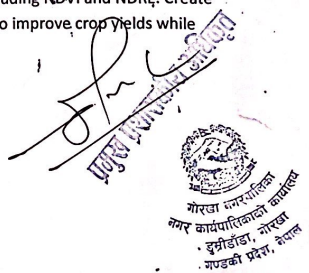 uding NDVI and NDRE. Create
o improve crop yields while
प्रमुख प्रशासकीय अधिकृत
गोरखा नगरपालिका
नगर कार्यपालिकाको कार्यालय
डुम्रीडाँडा, गोरखा
गण्डकी प्रदेश, नेपाल